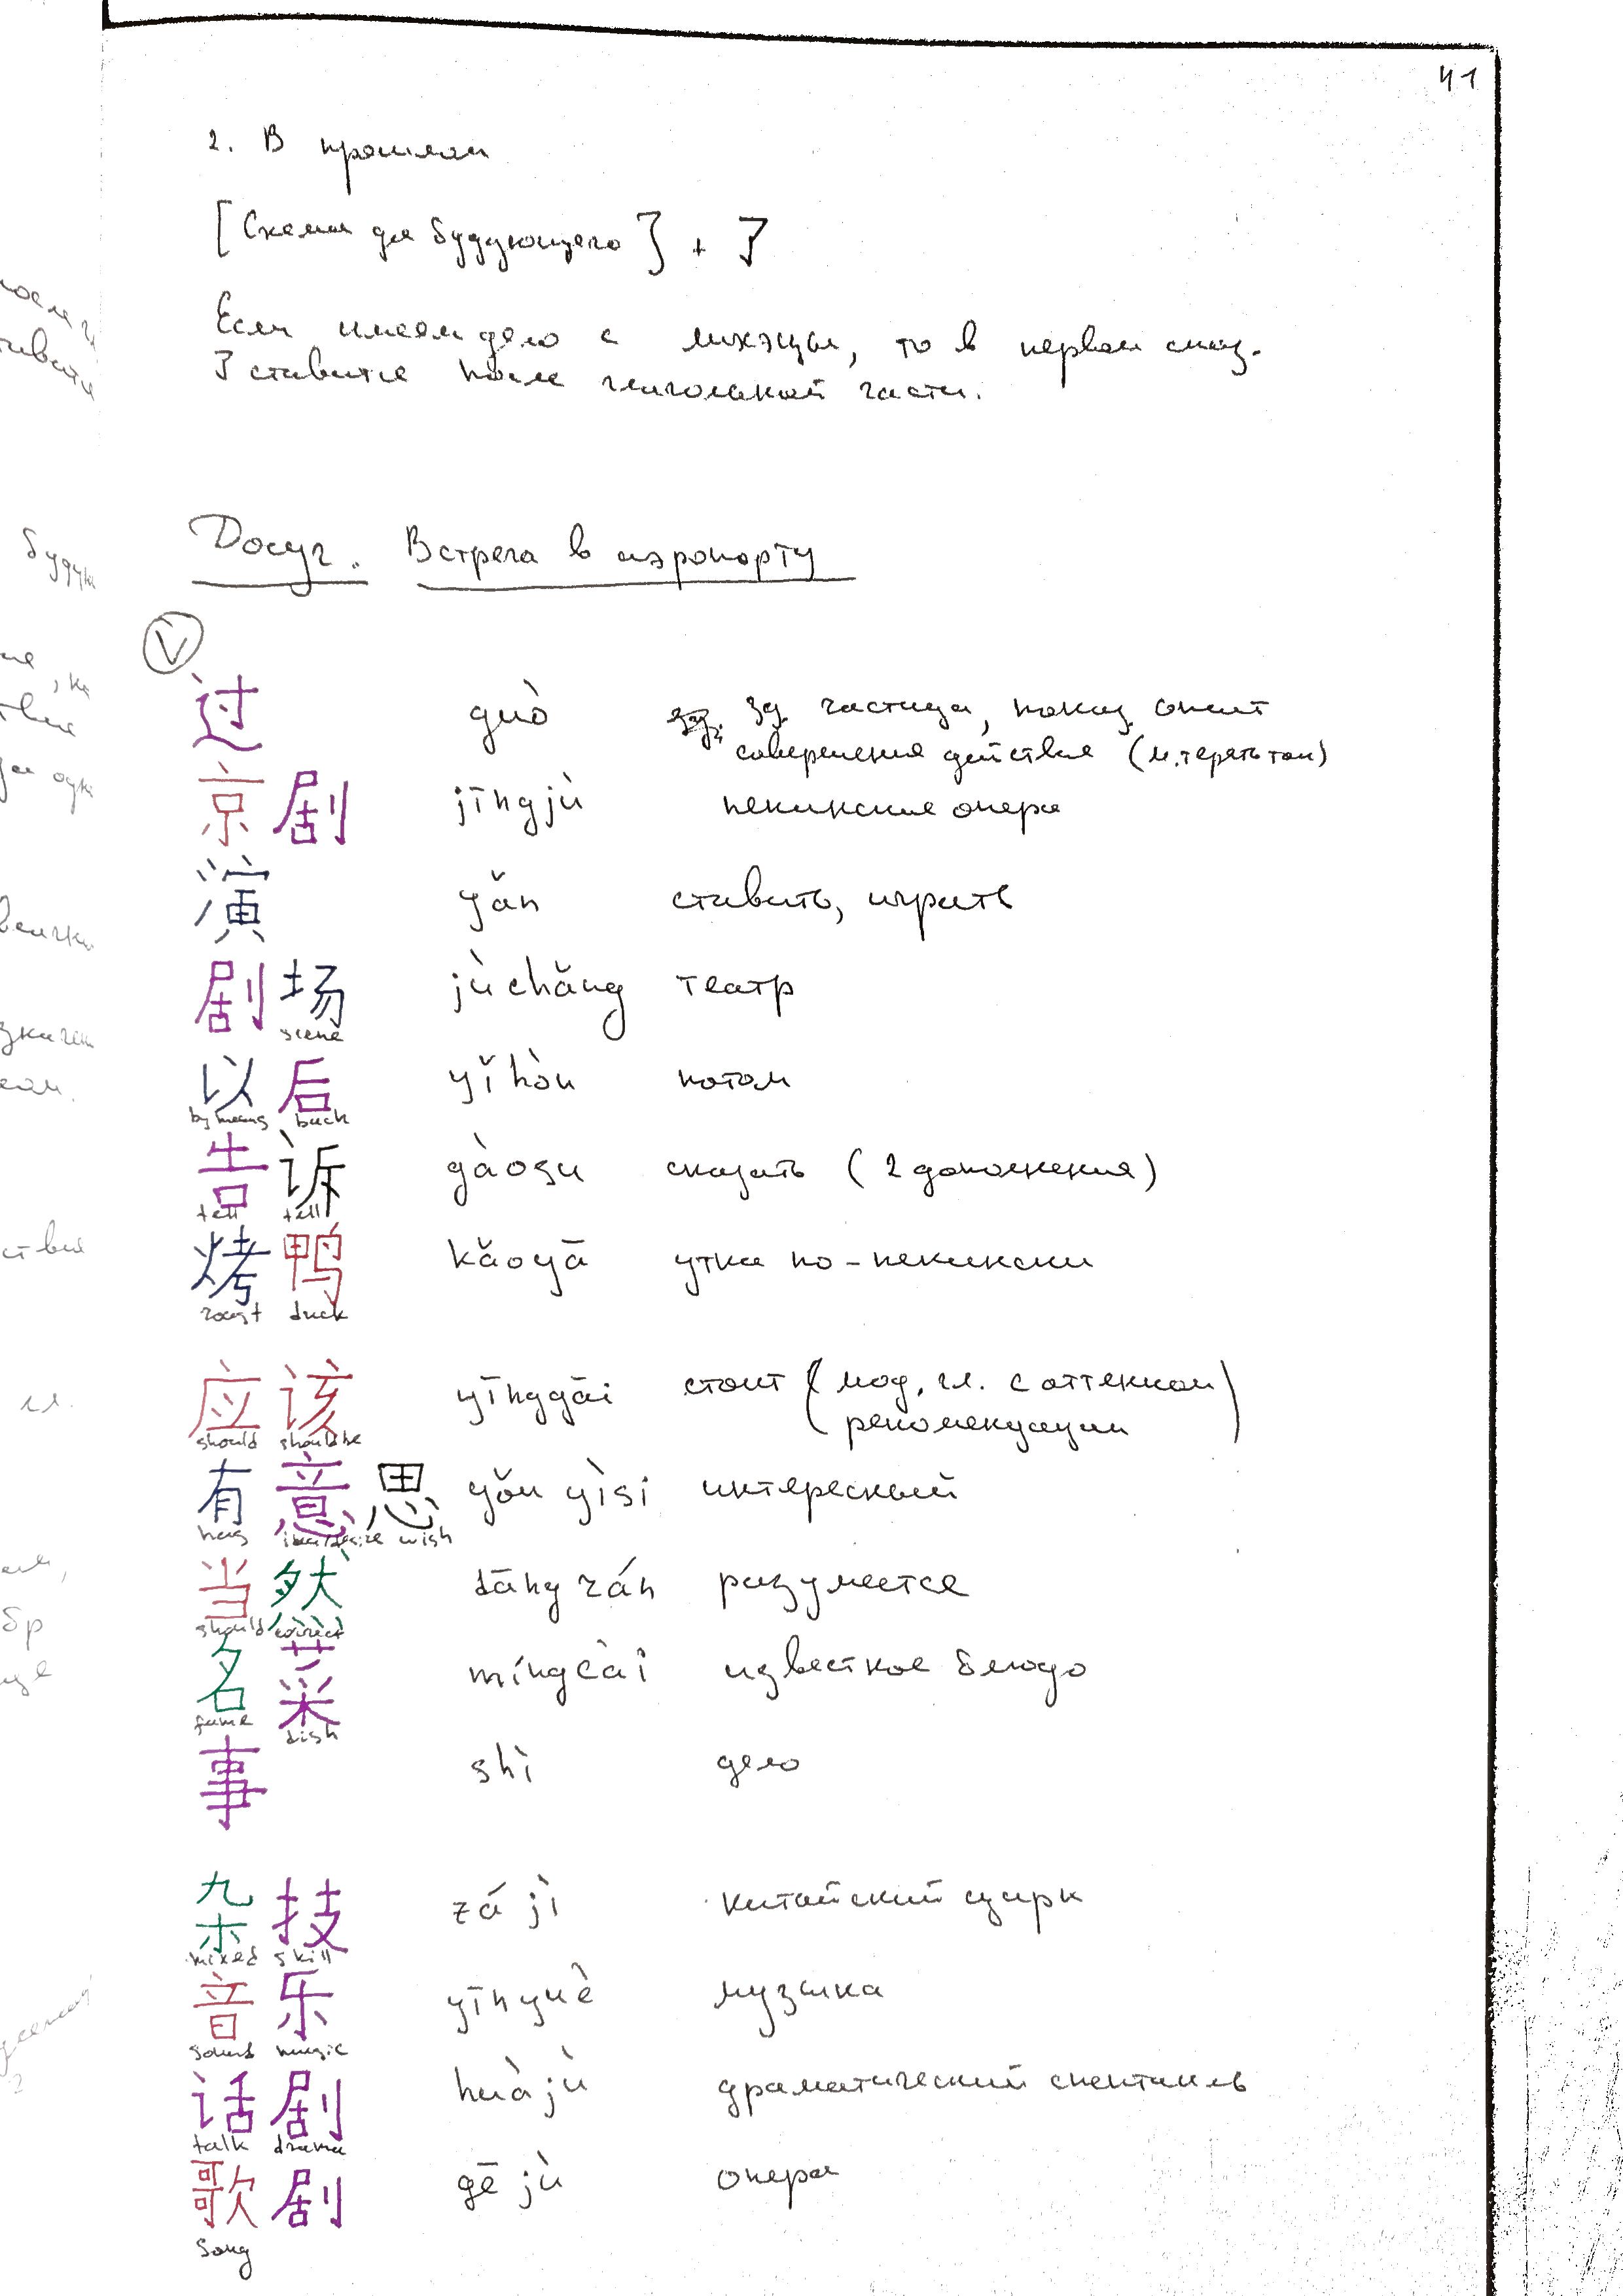 41
2. В прошлом
[Схема для будующего] + 了
Если имеем дело с лихэцы, то в первом случ.
了 ставится после глагольной части.
Досуг. Встреча в аэропорту
V
过 guò зд. частица, показ. опыт
совершения действия (м. терять тон)
京剧 jīngjù пекинская опера
演 yǎn ставить, играть
剧场 jùchǎng театр
scene
以后 yǐhòu потом
by means back
告诉 gàosu сказать (2 дополнения)
tell tell
烤鸭 kǎoyā утка по-пекински
roast duck
应该 yīnggāi стоит (мод. гл. с оттенком
рекомендации)
should should be
有意思 yǒu yìsi интересный
has idea/desire wish
当然 dāngrán разумеется
should correct
名菜 míngcài известное блюдо
fame dish
事 shì дело
杂技 zájì китайский цирк
mixed skill
音乐 yīnyuè музыка
sound music
话剧 huàjù драматический спектакль
talk drama
歌剧 gējù опера
song